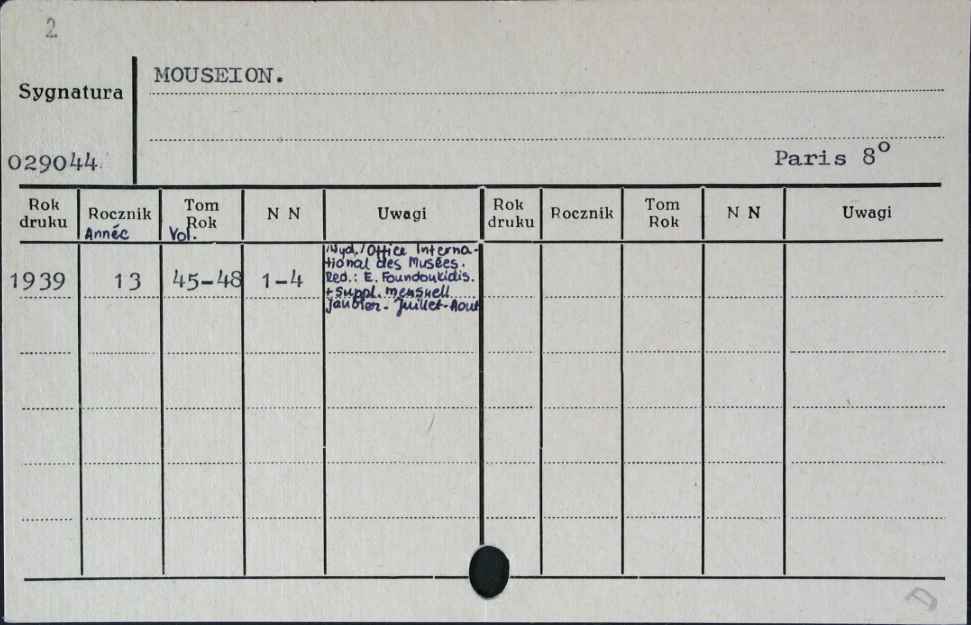 2
MOUSEION.
Sygnatura
029044
Paris 8°
Rok druku Rocznik Tom Rok N N Uwagi Rok druku Rocznik Tom Rok N N Uwagi
Annéc Vol.
1939 13 45-48 1-4
Wyd.: Office Interna-
tional des Musées.
Red.: E. Foundoukidis.
+ Suppl. mensuell
Janvier - Juillet-Aout
A